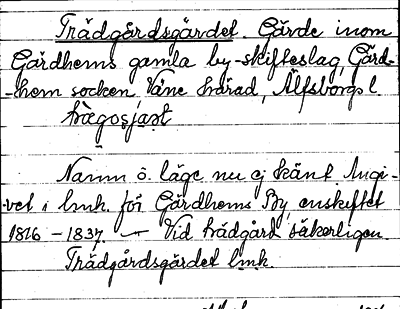 Trädgårdsgärdet. Gärde inom
Gärdhems gamla by-skifteslag, Gärd-
-hem socken, Väne härad, Älfsborgs l.
Namn o. läge nu ej känt. Angi-
vet i lmk. för Gärdhems By, enskiftet
1816 - 1837. — Vid trädgård säkerligen.
Trädgårdsgärdet lmk.